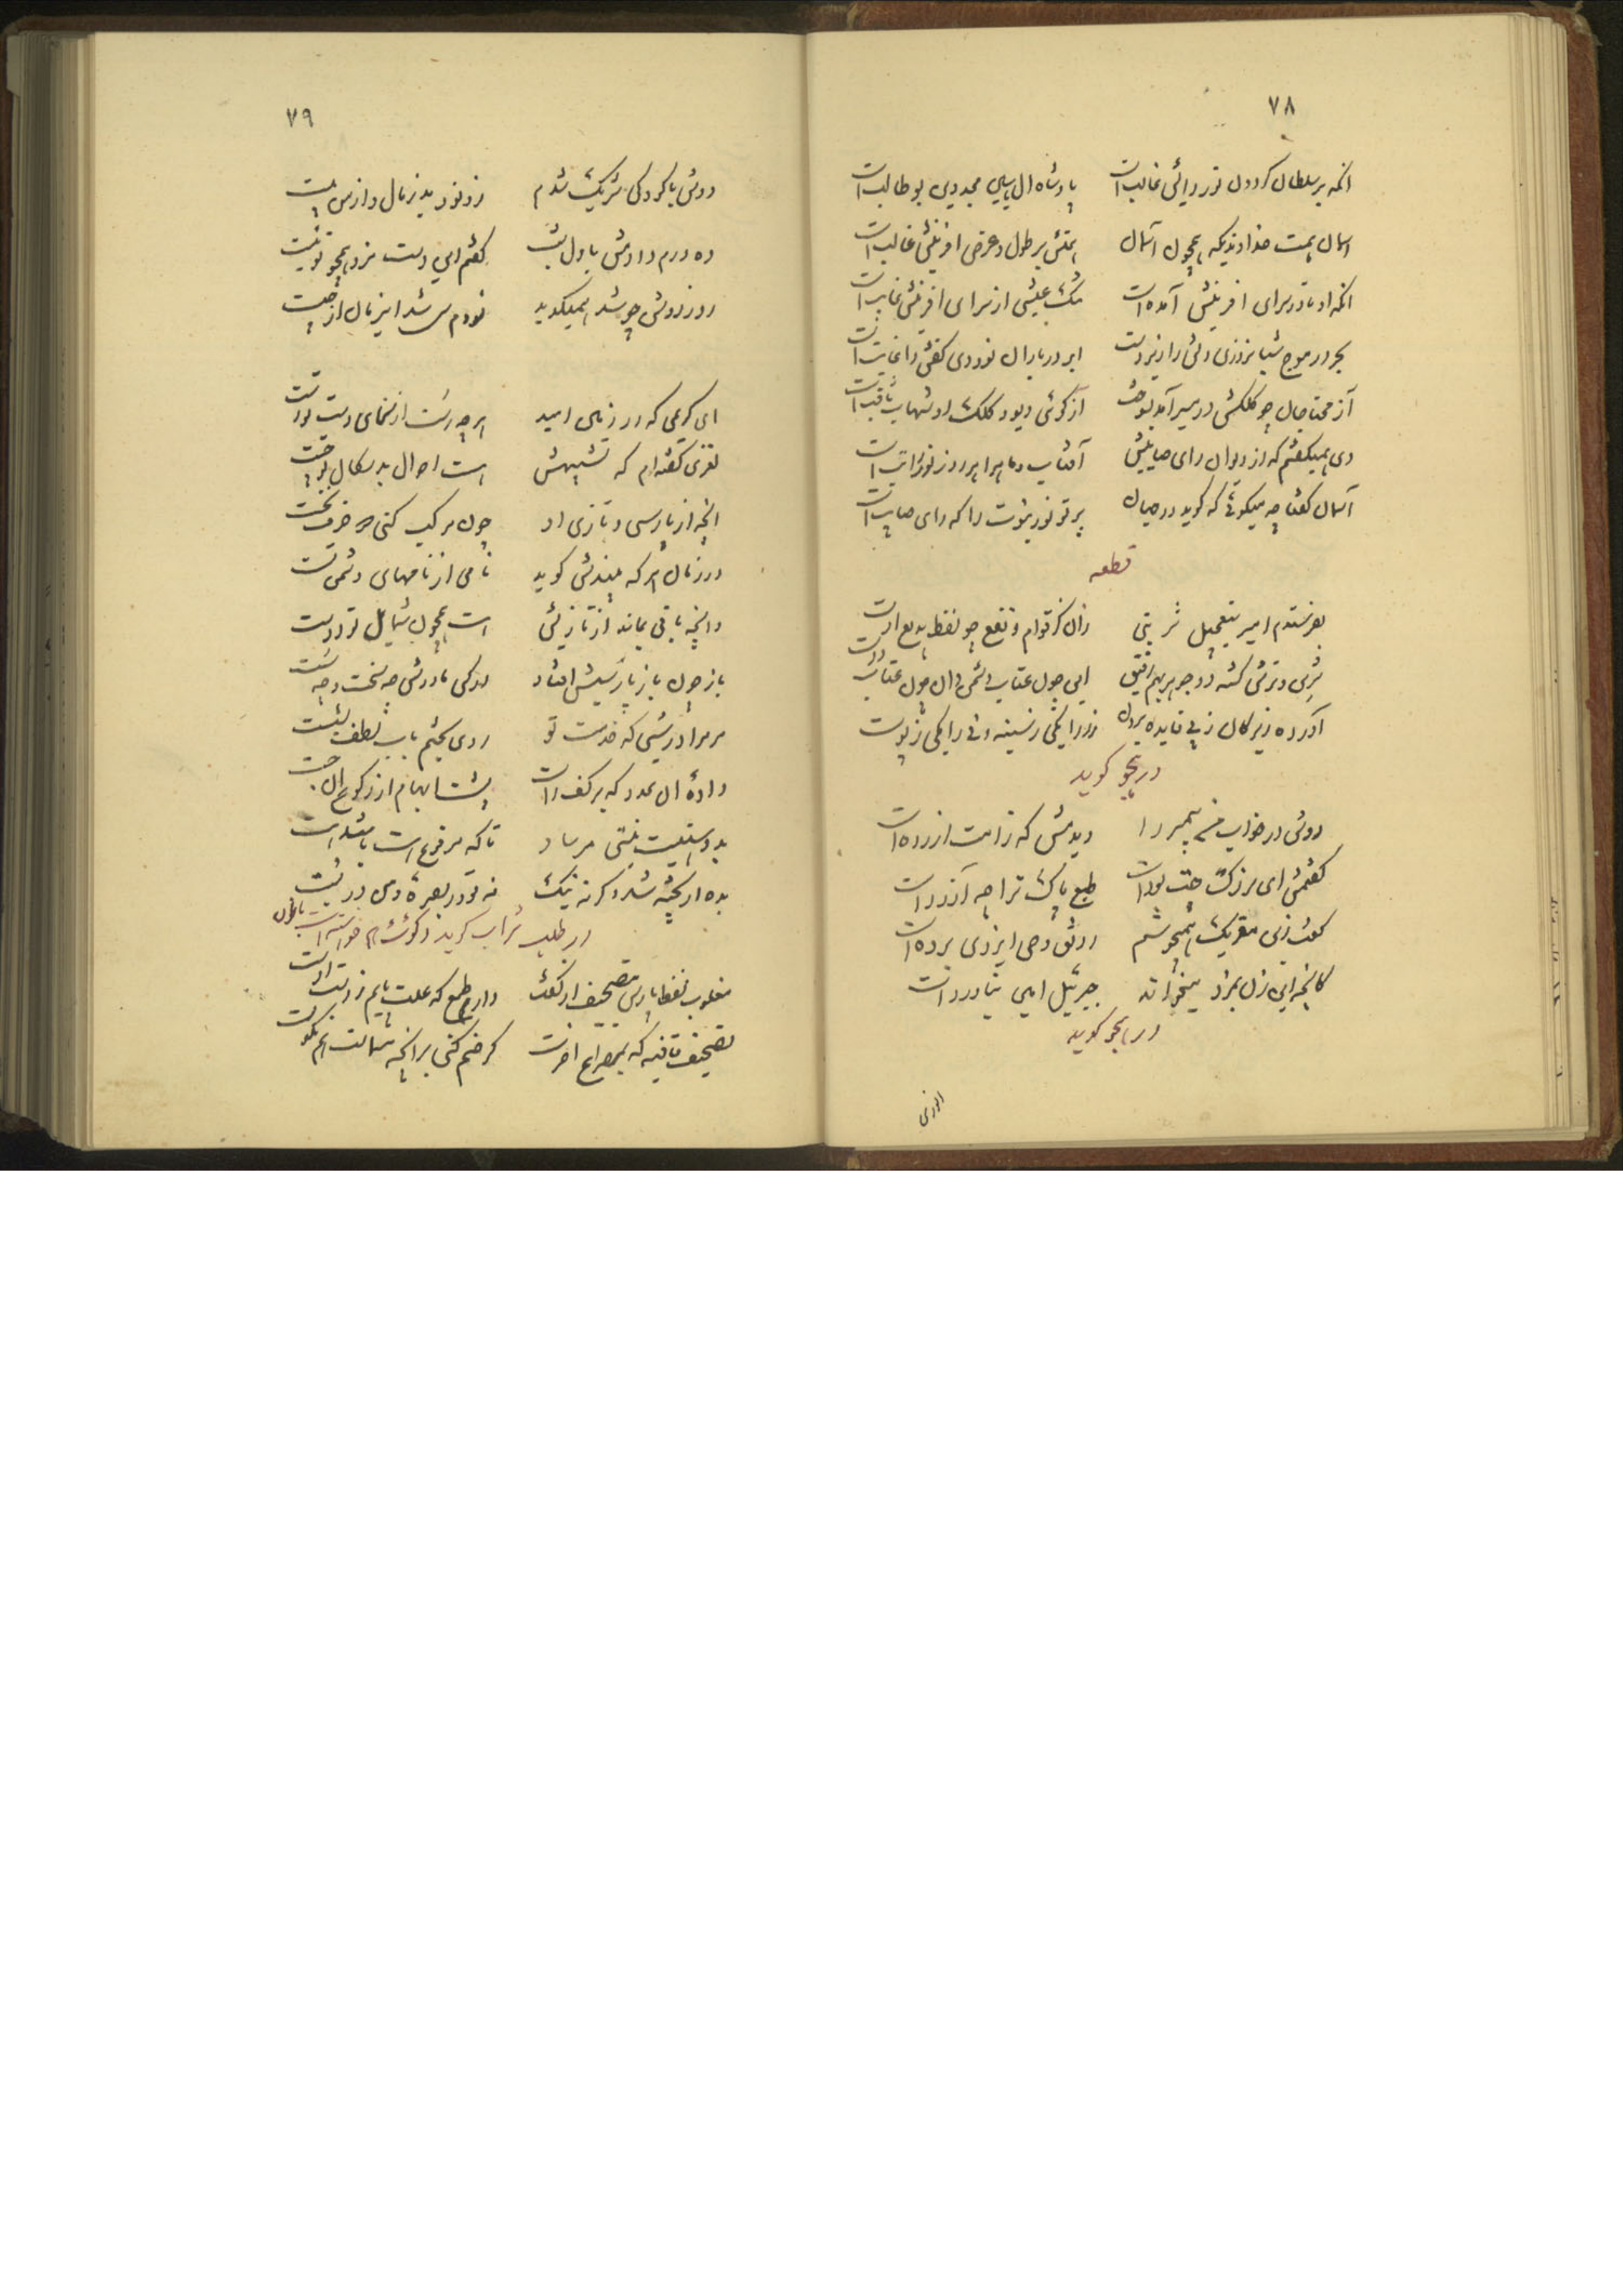 ۷۸
انکه بر سلطان کردون نور رایش غالبست
پادشاه ال یاسین مجددین بو طالبست
اسمان همت خداوندیکه همچون آسمان
همتش بر طول و عرض افرینش غالبست
انکه او تا در سرای افرینش آمده است
شک عیشی از سرای افرینش غایبست
بحر در موج شبانروزی دلش را زیردست
ابر در باران نوروزی کفش را
از مجتاجان چو کلکش در صریر آمد بوقت
از کوئی دیو و کلک او شهاب ثاقبست
دی همیکفتم که از دیوان رای صایبش
آفتاب و ماه را هر روز نور راتبست
آسمان کفتا چه میکوئی که کوید در جهان
پرتو نور نبوت را که رای صایبست
قطعه
بفرستدم امیر بتعجیل شربتی
زان کز قوام و نفع چو لفظ بدیع اوست
شیرین و ترش کشته دو جوهر بهم رفیق
این چون عتاب دشمن و ان چون عتاب دوست
آورده زیرکان ز پی فایده برون
زور ایکی ز سینه و زور ایکی ز پوست
در هجو کوید
دوش در خواب من پیمبر را
دیدمش کو ز امت ازرده است
کفتمش ای بزرک جفت بودست
طبع پاک ترا چه آزردست
کفت زین مقریک همیجوشم
رونق وحی ایزدی برده است
کانچه این زن بمزد میخواند
جبرئیل امین نیاوردست
در هجو کوید
۷۹
دوش با کودکی شریک شدم
زو نود بد زمان و از من بیست
ده درم دادمش باول شب
کفتم ای دوست مزد همچو تو نیست
روز روشن چو شد همیکوید
نودم شد این زمان از چیست
ای کریمی که در زمین امید
هرچه رست از سخای دست تو رست
لغزی کفته ام که تشبیهش
هست احوال بدسکال تو چست
انچه از پارسی و تازی او
چون مرکب کنی دو حرف نخست
در زمان هر که بیندش کوید
نامی از نامهای دشمن تست
وانچه باقی بماند از تازیش
هست همچون شمایل تو درست
باز چون باز پارسیش افتاد
در کمی مادرش چه سخت و چه سست
مر مرا در شبی که خدمت تو
روی بختم باب لطف بشست
دادهٔ ان عدد که بر کف راست
پشت ابهام از رکوع ان جست
بد وبیتیت مبتنی مرساد
تا که مرفوع هست باشد هست
بده ار پخته شد و کر نه نیک
نه تو در بصرهٔ و من در بست
در طلب شراب کوید و کوشت هم خواسته است
مقلوب لفظ پارس تصحیف از کفت
دارم طمع که علت پایم ز دست اوست
تصحیف قافیه که بمصراع اخرست
کر ضم کنی بر انچه مسماست هم نکوست
انوری